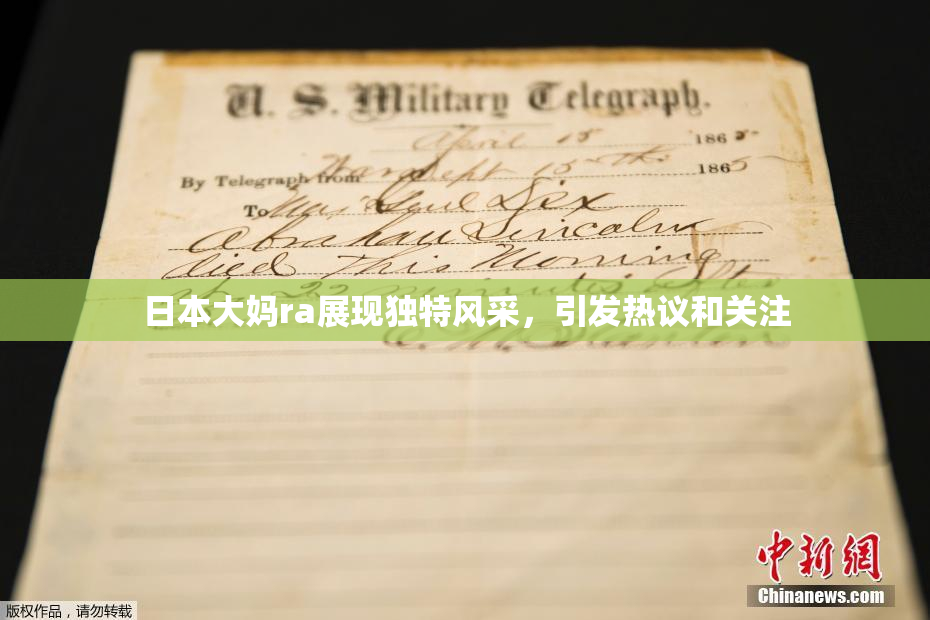 U. S. Military Telegraph.
April 15 1865.
By Telegraph from War Dept 15th 1865
To Maj Genl Dix
Abraham Lincoln
died This Morning
at 22 minutes after
日本大妈ra展现独特风采，引发热议和关注
E. M. Stanton
中新网
Chinanews.com
版权作品，请勿转载